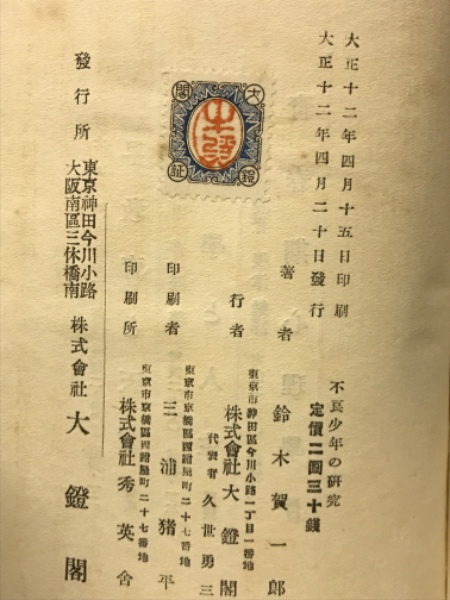 大正十二年四月十五日印刷
大正十二年四月二十日發行
不良少年の研究
定價二圓三十錢
著者 鈴木賀一郎
東京市神田區今川小路一丁目一番地
行者 株式會社大鐙閣
代表者 久世勇三
東京市京橋區西紺屋町二十七番地
印刷者 三浦猪平
東京市京橋區西紺屋町二十七番地
印刷所 株式會社秀英舍
大鐙閣証
發行所
東京神田今川小路
大阪南區三休橋南
株式會社 大鐙閣